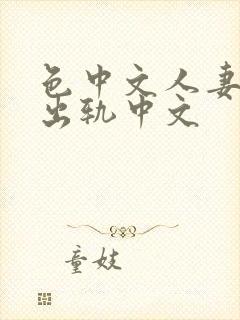 色中文人妻
出轨中文
童妓